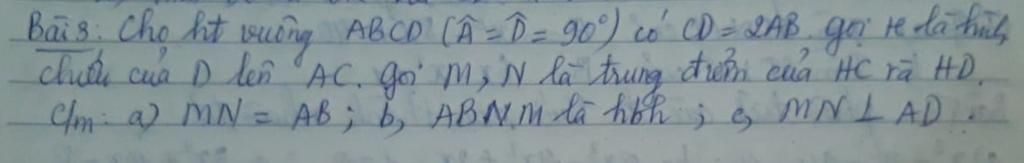 Bài 8: Cho ht vuông ABCD (Â = D̂ = 90°) có CD = 2AB. gọi H là hình
chiếu của D lên AC. gọi M, N là trung điểm của HC và HD.
C/m: a) MN = AB; b, ABNM là hbh; c, MN ⊥ AD.